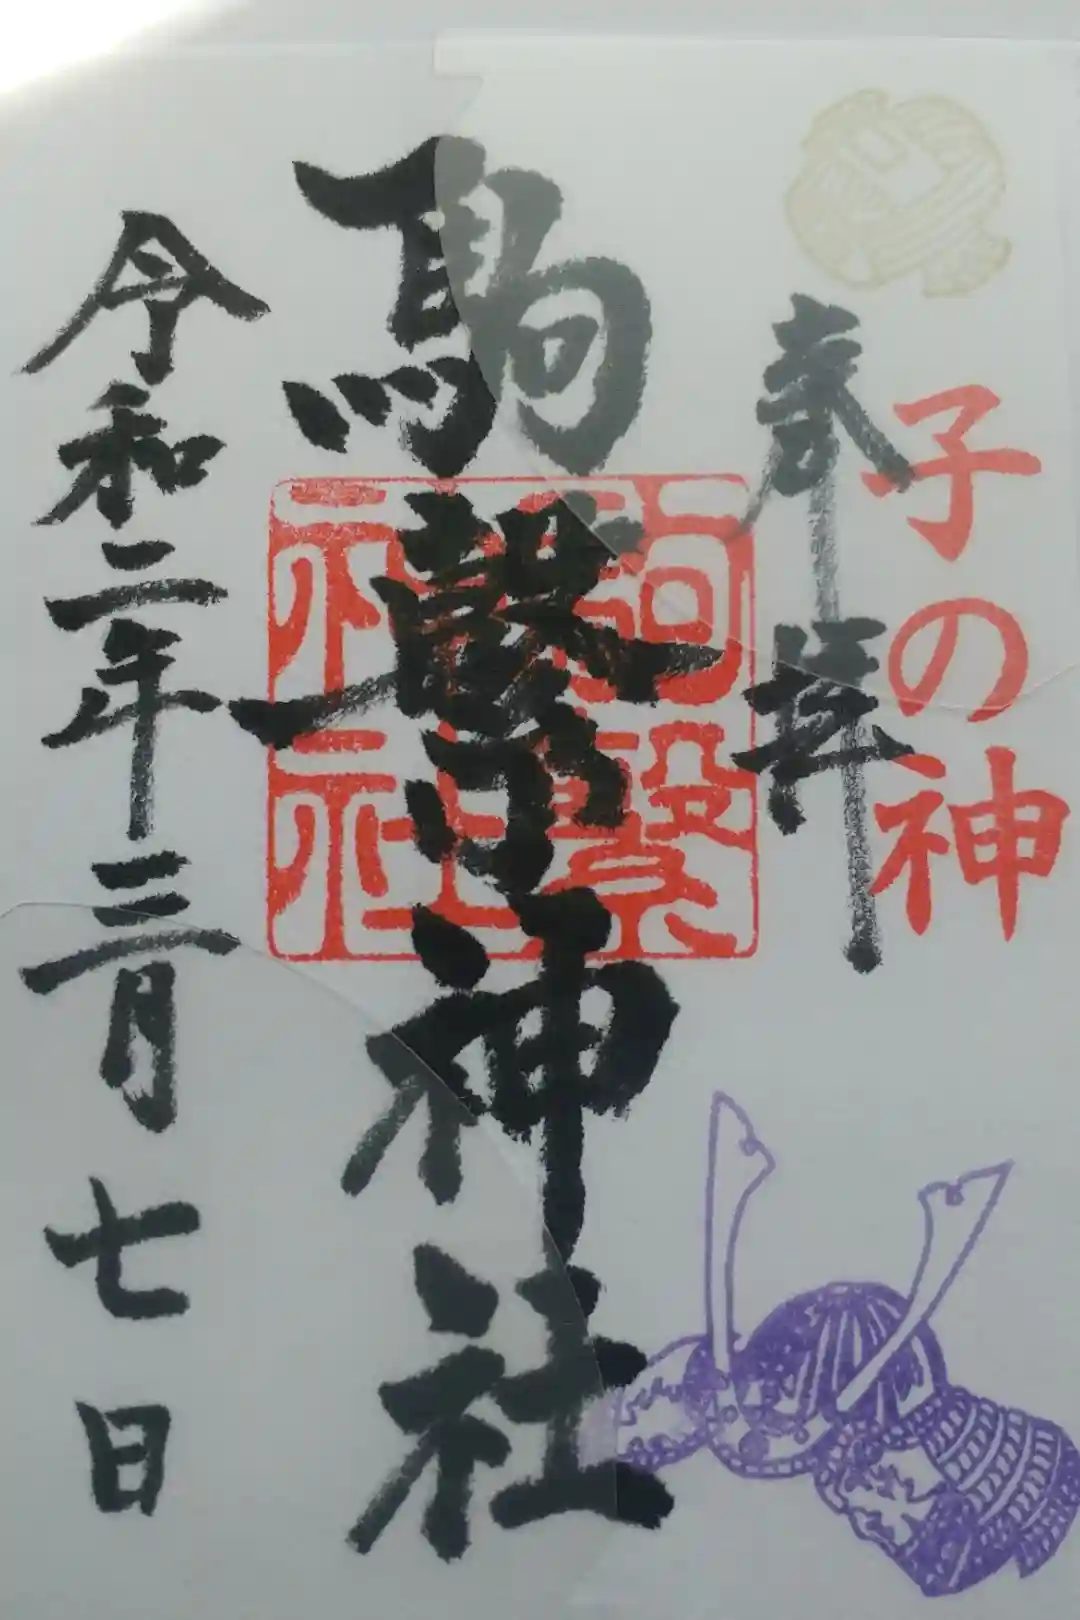 子の神
奉拝
駒繋神社
駒繋
神社
令和二年三月七日